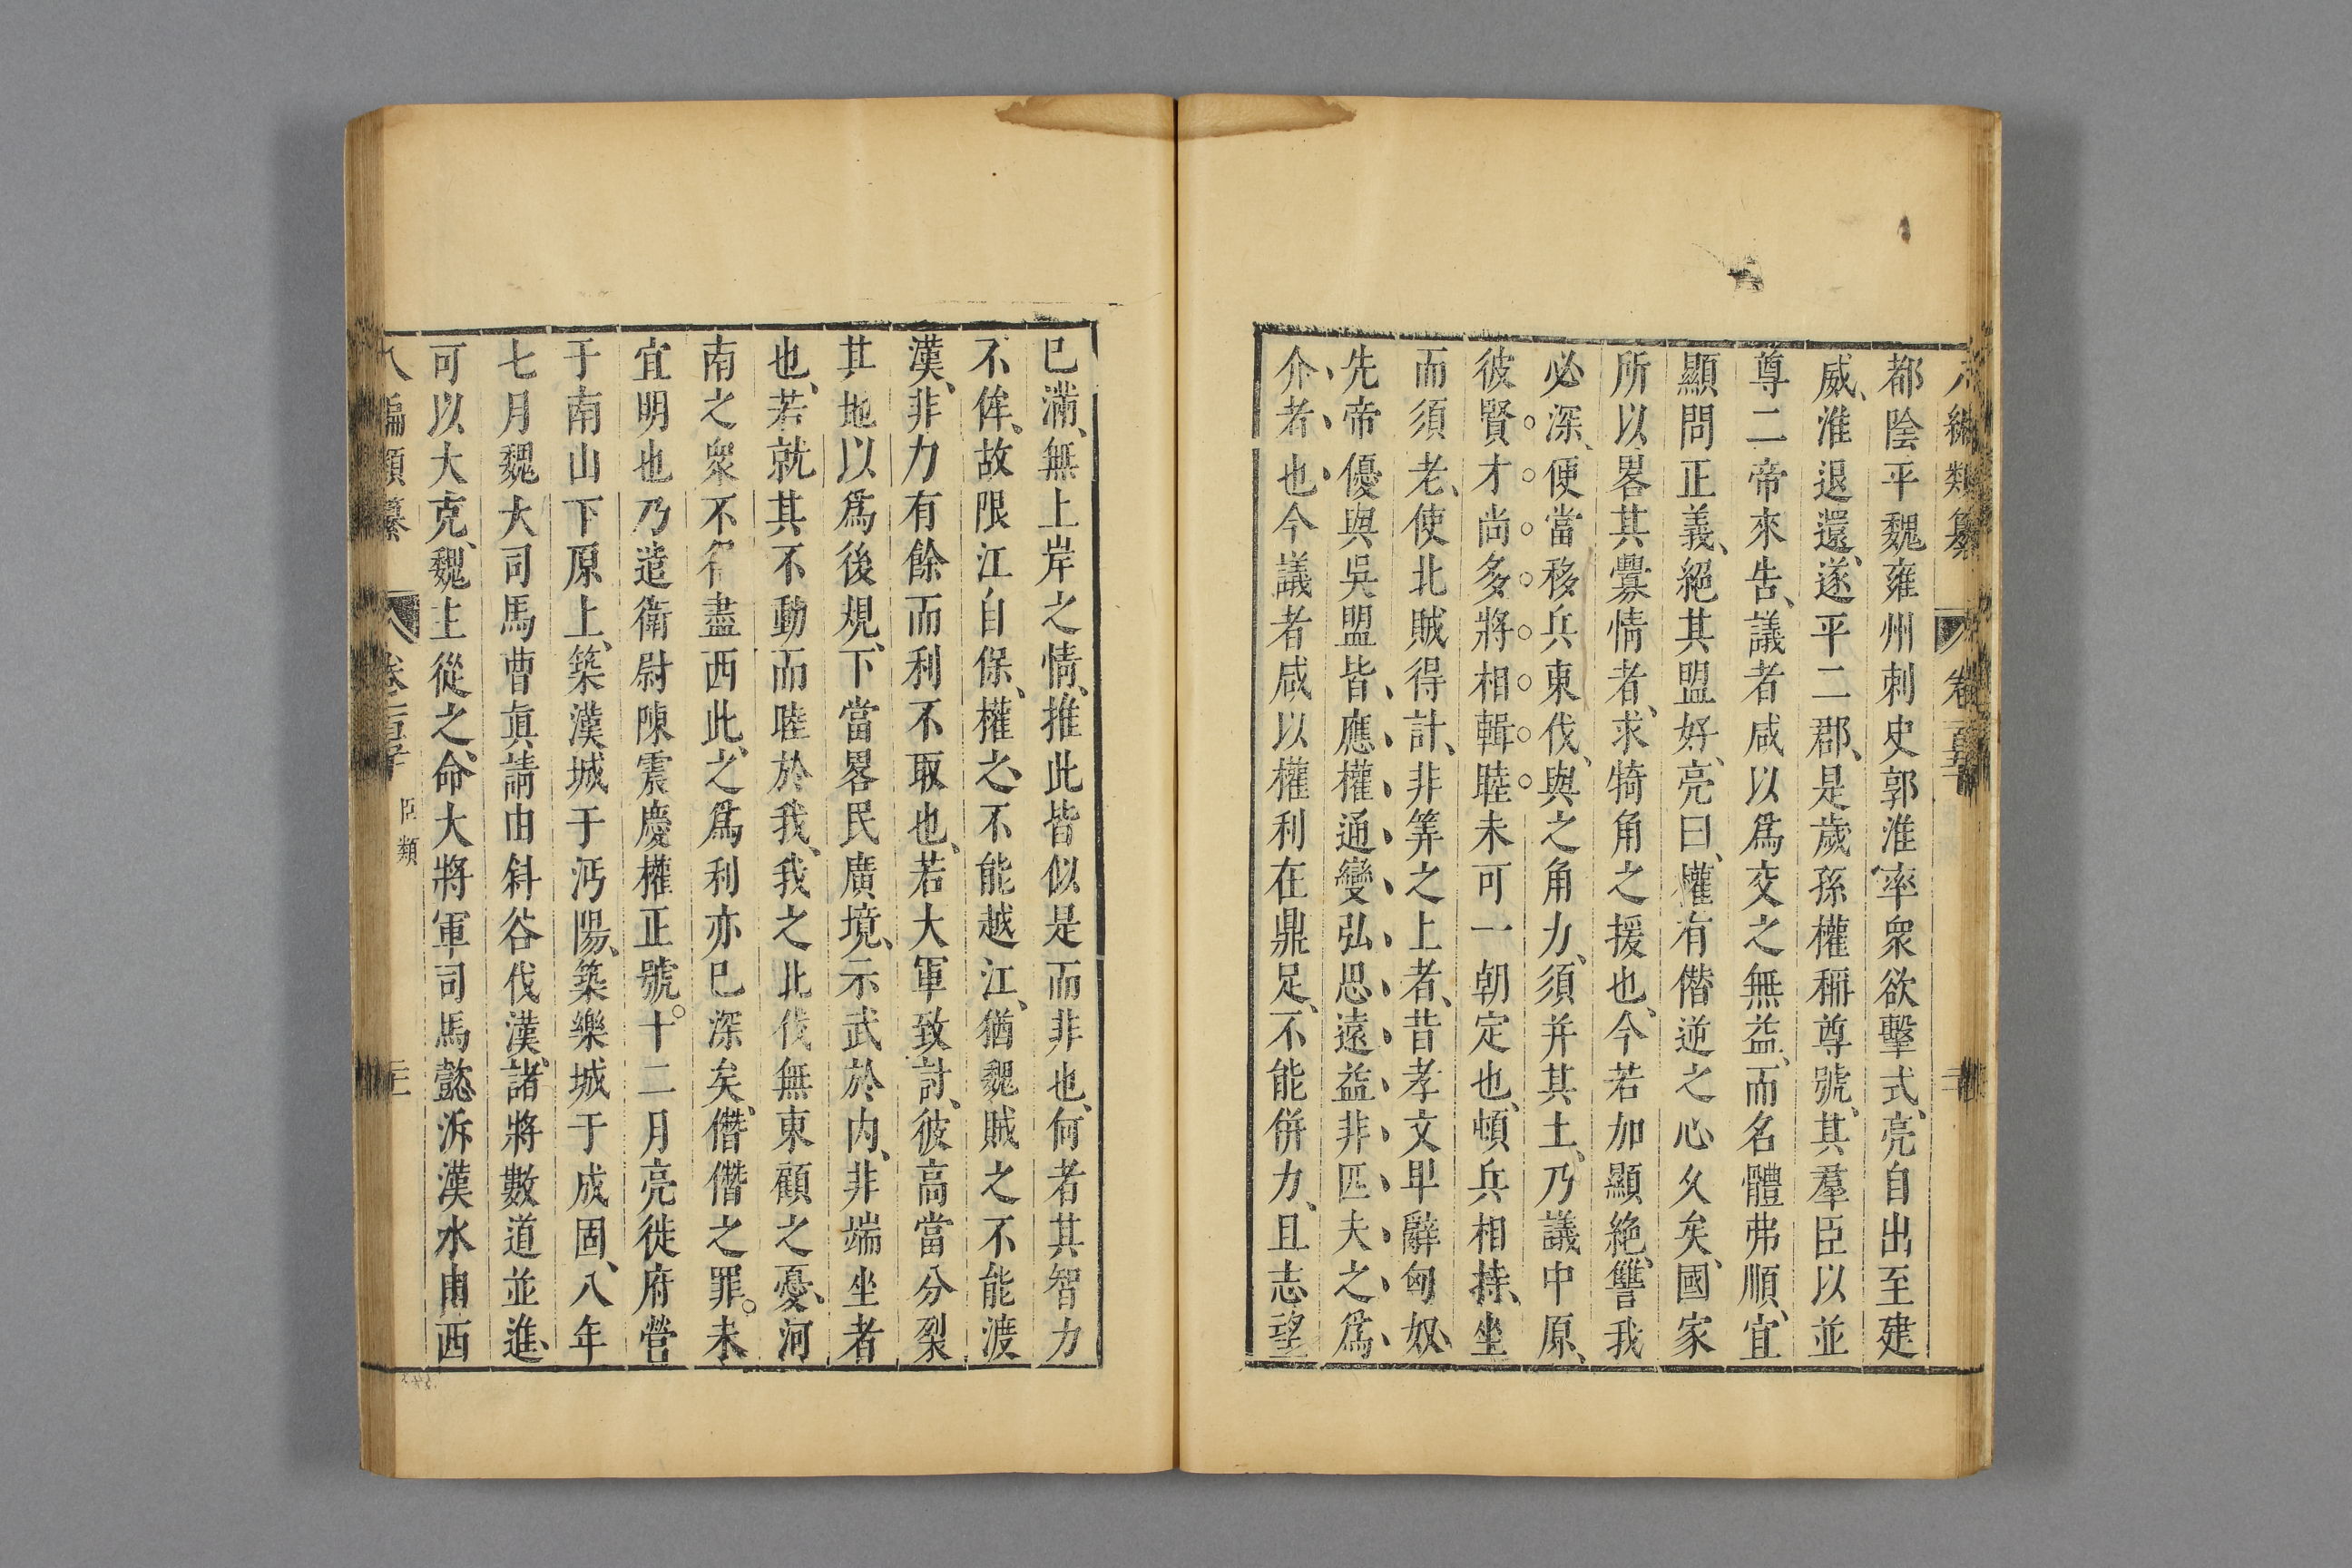 都陰平魏雍州刺史郭淮率衆欲擊式、亮自出至建
威、淮退還、遂平二郡、是歲孫權稱尊號、其羣臣以並
尊二帝來告、議者咸以爲交之無益、而名體弗順、宜
顯問正義、絕其盟好、亮曰、權有僭逆之心久矣、國家
所以畧其釁情者、求犄角之援也、今若加顯絕、讐我
必深、便當移兵東伐、與之角力、須并其土、乃議中原、
彼賢才尚多將相輯睦未可一朝定也、頓兵相持、坐
而須老、使北賊得計、非筭之上者、昔孝文卑辭匈奴、
先帝優與吳盟皆應權通變弘思遠益非匹夫之爲
介者也今議者咸以權利在鼎足、不能併力、且志望
已滿、無上岸之情、推此皆似是而非也、何者其智力
不侔、故限江自保、權之不能越江、猶魏賊之不能渡
漢、非力有餘而利不取也、若大軍致討、彼高當分裂
其地以爲後規、下當畧民廣境、示武於内、非端坐者
也、若就其不動而睦於我、我之北伐無東顧之憂、河
南之衆不得盡西此、之爲利亦已深矣、僭僭之罪。未
宜明也乃遣衛尉陳震慶權正號。十二月亮徙府營
于南山下原上、築漢城于沔陽、築樂城于成固、八年
七月魏大司馬曹眞請由斜谷伐漢、諸將數道並進、
可以大克、魏主從之、命大將軍司馬懿泝漢水由西
八編類纂 卷 臣類